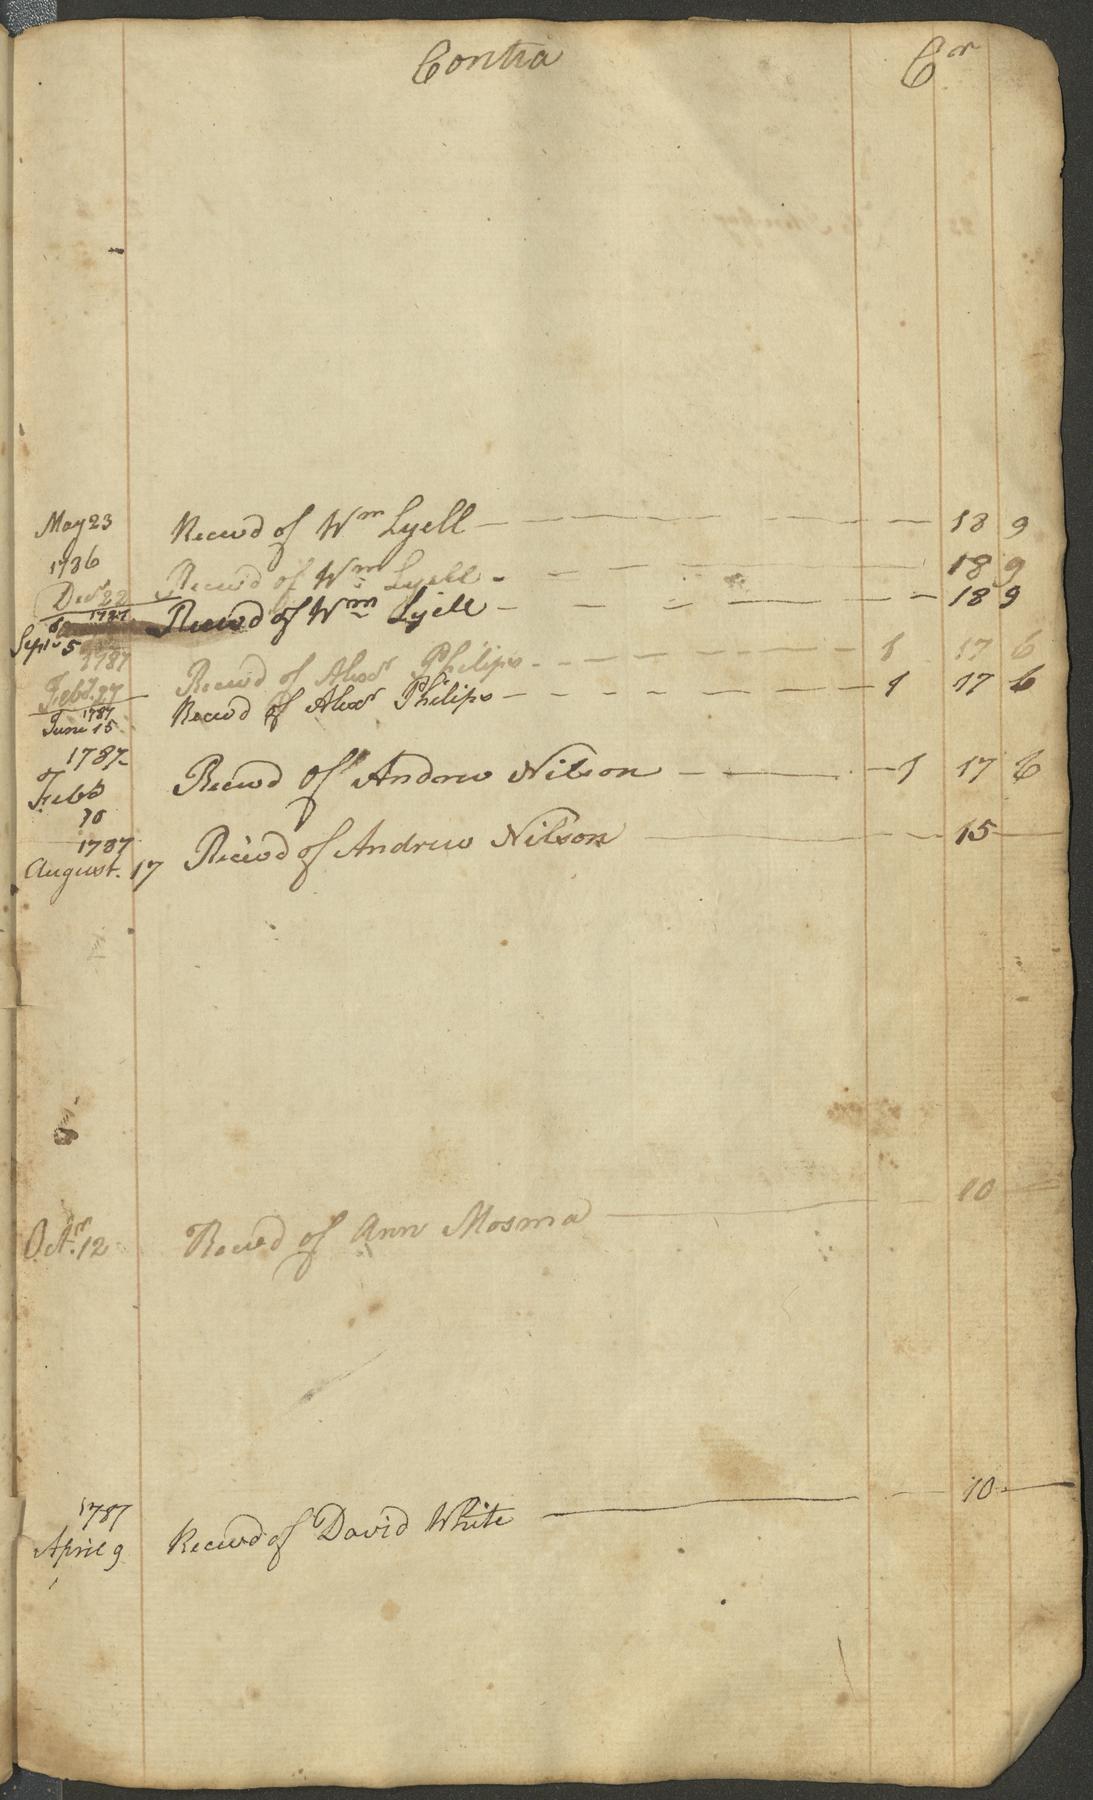 Contra Cr
May 23 Recevd of Wm Lyell 18 9
1786
Decr 22 Recevd of Wm Lyell 18 9
1787
Septr 5 Recevd of Wm Lyell 18 9
1787
Feby 27 Recevd of Alexr Philips 1 17 6
1787
June 15 Recevd of Alexr Philips 1 17 6
1787
Febr Recevd of Andrew Nilson 1 17 6
10
1787
August. 17 Recevd of Andrew Nilson 15
Octr. 12 Recevd of Ann Mosma 10
1787
April 9 Recevd of David White 10